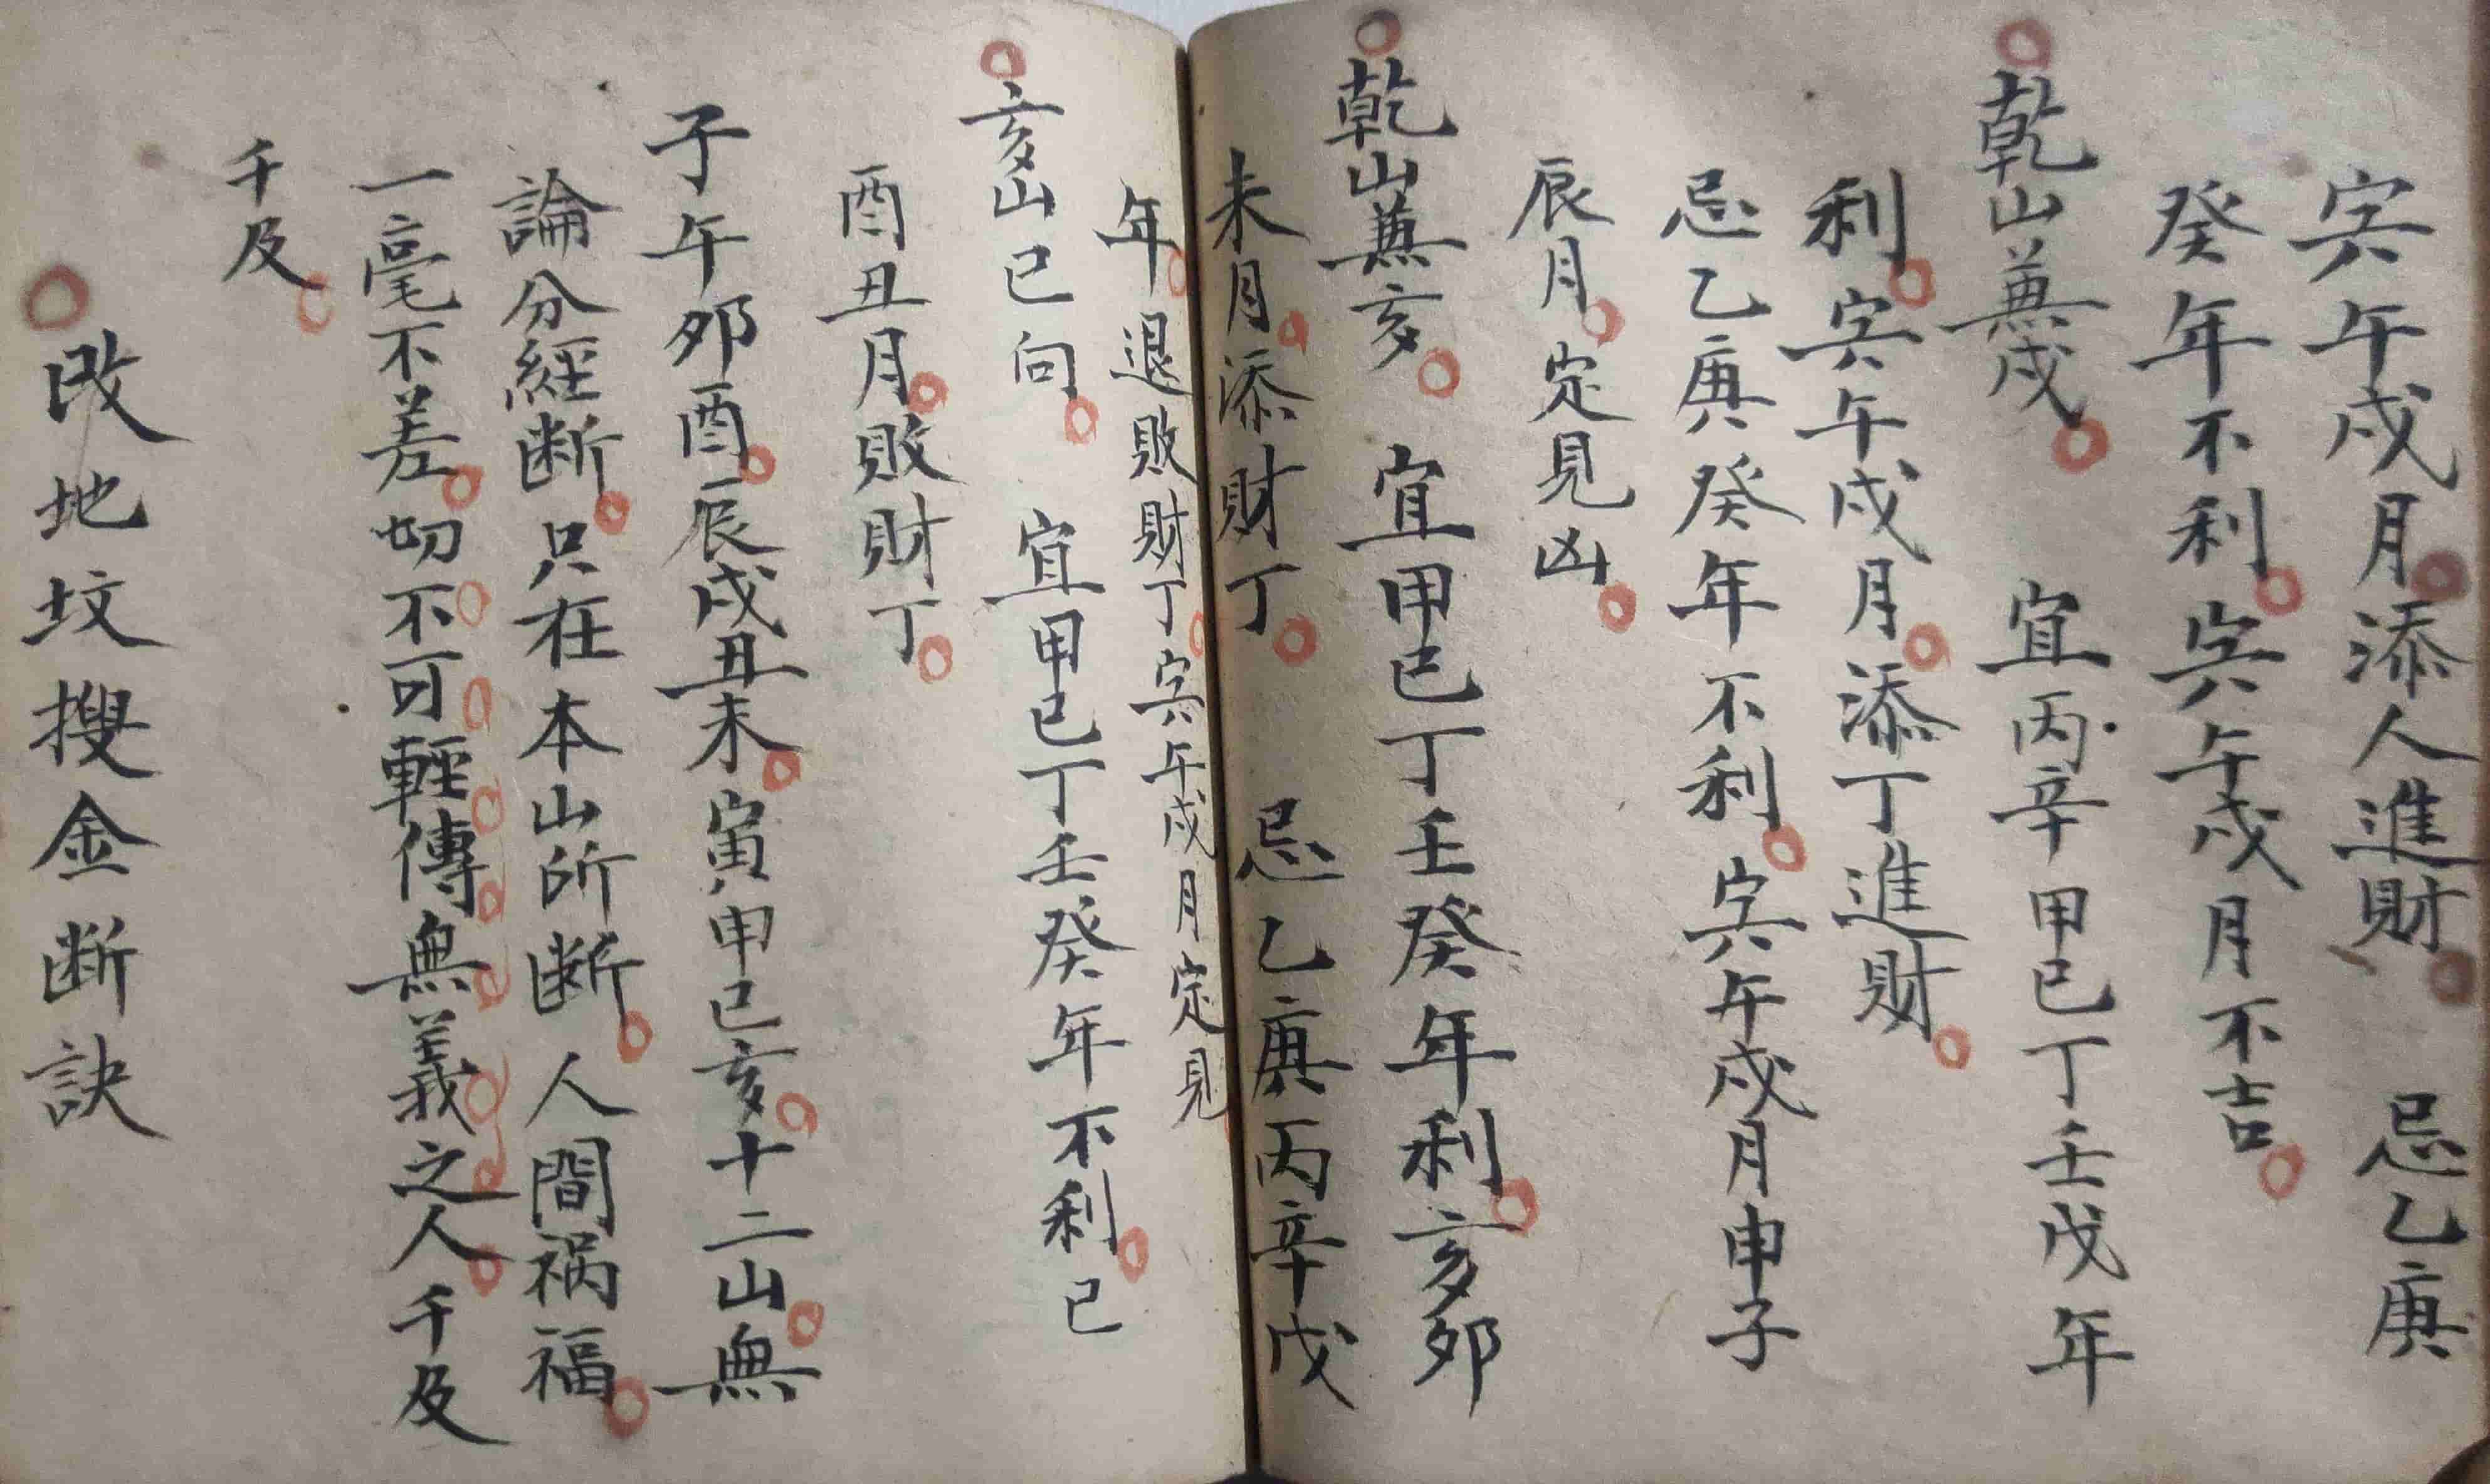 寅午戌月添人進財忌乙庚
癸年不利寅午戌月不吉
乾山兼戌宜丙辛甲己丁壬戊年
利寅午戌月添丁進財
忌乙庚癸年不利寅午戌月申子
辰月定見凶
乾山兼亥宜甲己丁壬癸年利亥卯
未月添財丁忌乙庚丙辛戊
年退敗財丁寅午戌月定見
亥山巳向宜甲己丁壬癸年不利巳
酉丑月敗財丁
子午卯酉辰戌丑未寅申巳亥十二山無
論分經断只在本山所断人間禍福
一毫不差切不可輕傳無義之人千及
千及
改地坟搜金断訣